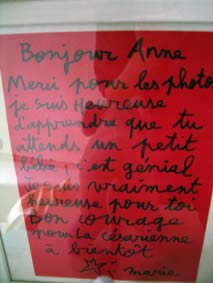 Bonjour Anne
Merci pour les photo
je suis Heureuse
d'apprendre que tu
attends un petit
bébé c'est génial
je suis vraiment
heureuse pour toi
Bon courage
pour la césarienne
à bientôt
marie